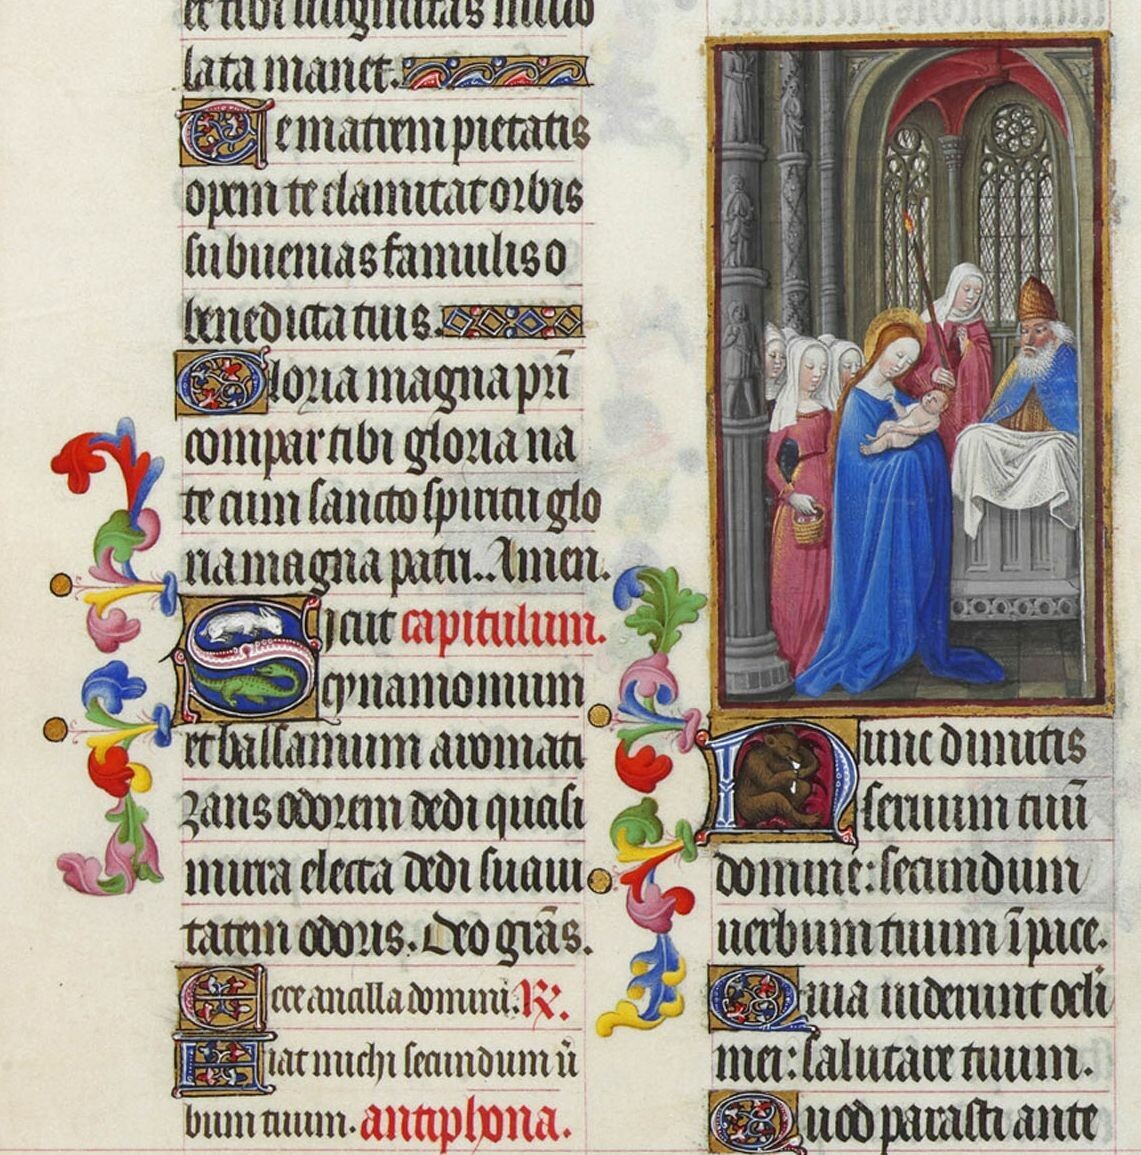 et tibi uirginitas inuio
lata manet.
Te matrem pietatis
opem te clamitat orbis
subuenias famulis o
benedicta tuis.
Gloria magna pr̄i
compar tibi gloria na
te cum sancto spiritu glo
ria magna patri. Amen.
Sicut capitulum.
cynamomum
et balsamum aromati
zans odorem dedi quasi
mirra electa dedi suaui
tatem odoris. Deo gr̄as.
Ecce ancilla domini. ℟.
Fiat michi secundum ū
bum tuum. antiphona.
Nunc dimitis
seruum tuū
domine: secundum
uerbum tuum ī pace.
Quia uiderunt ocl̄i
mei: salutare tuum.
Quod parasti ante